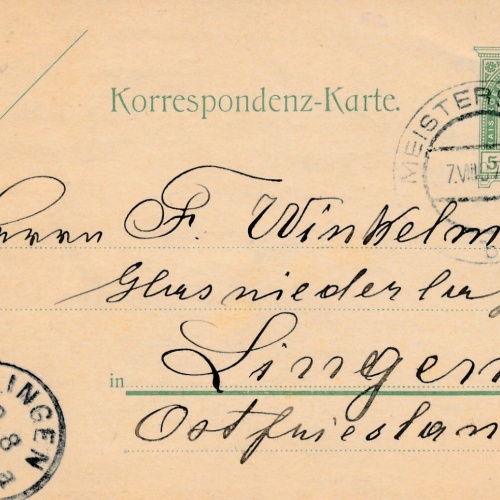 Korrespondenz-Karte.
MEISTERS
5
7.VIII.
6
Herrn F. Winkelm
Glasniederlag
in Lingen
Ostfrieslan
LINGEN
8